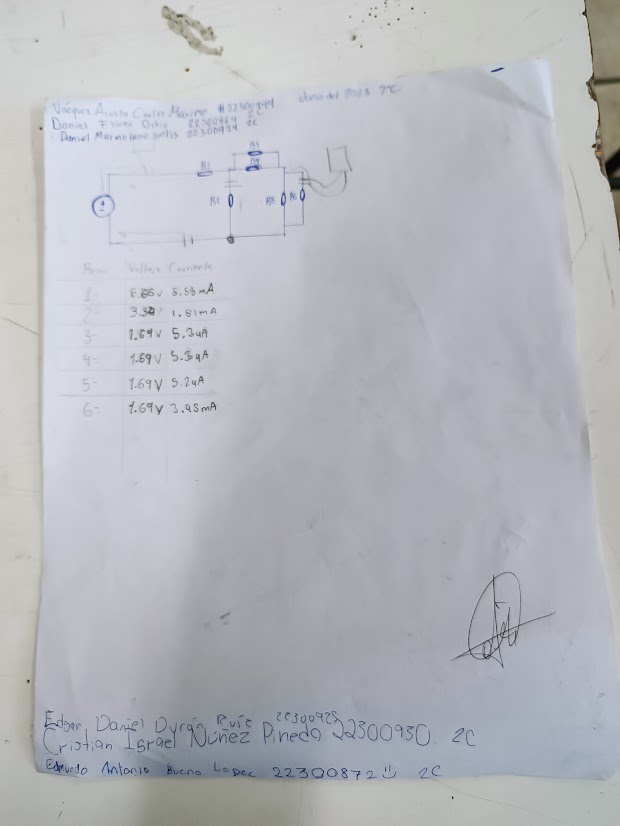 Vázquez Acosta Carlos Máximo #22300949 Junio del 2023 2°C
Daniel Flores Ortiz 22300869 2C
Daniel 22300929 2C
R1
R2
R5
R6
Voltaje Corriente
1- 6.66v 5.58mA
2- 1.81mA
3- 1.69V 5.3uA
4- 1.69V
5- 1.69V 5.2uA
6- 1.69V 3.95mA
Edgar Daniel Durán Ruíz 22300928
Cristian Israel Núñez Pineda 22300930. 2C
Edmundo Antonio Bueno Lopez 22300872 2C